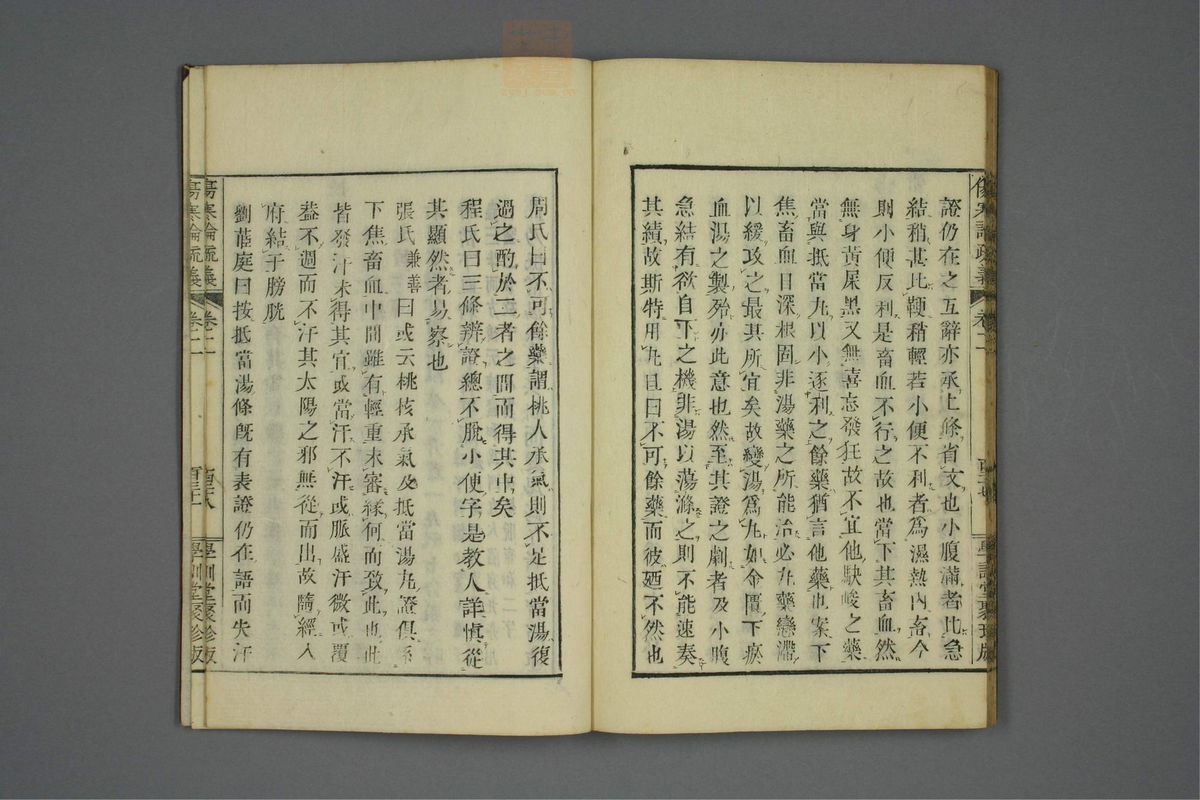 證仍在之互辭亦承上條省文也小腹滿者比急
結稍甚比鞕稍輕若小便不利者爲濕熱內畜今
則小便反利是畜血不行之故也當下其畜血然
無身黃屎黑又無喜忘發狂故不宜他駃峻之藥
當與抵當丸以小逐利之餘藥猶言他藥也案下
焦畜血目深根固非湯藥之所能治必丸藥戀滯
以緩攻之最其所宜矣故變湯爲丸如金匱下瘀
血湯之製殆亦此意也然至其證之劇者及小腹
急結有欲自下之機非湯以蕩滌之則不能速奏
其績故斯特用丸且曰不可餘藥而彼廼不然也
周氏曰不可餘藥謂桃人承氣則不足抵當湯復
過之酌於二者之間而得其中矣
程氏曰三條辨證總不脫小便字是教人詳慎從
其顯然者易察也
張氏兼善曰或云桃核承氣及抵當湯丸證俱系
下焦畜血中間雖有輕重未審緣何而致此也此
皆發汗未得其宜或當汗不汗或脈盛汗微或覆
葢不週而不汗其太陽之邪無從而出故隨經入
府結于膀胱
劉茝庭曰按抵當湯條既有表證仍在語而失汗
傷寒論疏義
卷二
學訓堂聚珍版